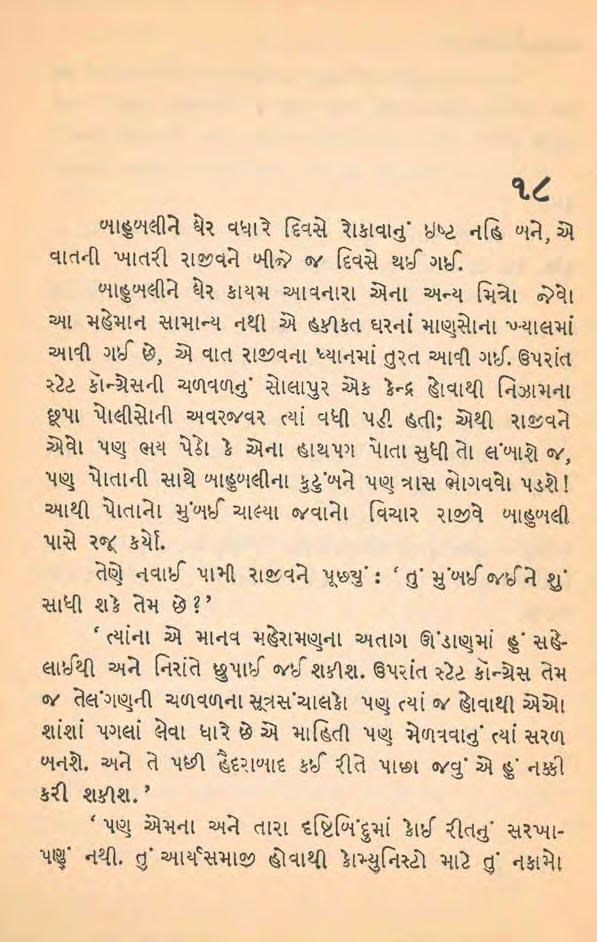 ૧૮
બાહુબલીને ઘેર વધારે દિવસે રોકાવાનું ઇષ્ટ નહિ બને, એ
વાતની ખાતરી રાજીવને બીજે જ દિવસે થઈ ગઈ.
બાહુબલીને ઘેર કાયમ આવનારા એના અન્ય મિત્રો જેવો
આ મહેમાન સામાન્ય નથી એ હકીકત ઘરનાં માણસોના ખ્યાલમાં
આવી ગઈ છે, એ વાત રાજીવના ધ્યાનમાં તુરત આવી ગઈ. ઉપરાંત
સ્ટેટ કૉન્ગ્રેસની ચળવળનું સોલાપુર એક કેન્દ્ર હોવાથી નિઝામના
છૂપા પોલીસોની અવરજવર ત્યાં વધી પડી હતી; એથી રાજીવને
એવો પણ ભય પેઠો કે એના હાથપગ પોતા સુધી તો લંબાશે જ,
પણ પોતાની સાથે બાહુબલીના કુટુંબને પણ ત્રાસ ભોગવવો પડશે!
આથી પોતાનો મુંબઈ ચાલ્યા જવાનો વિચાર રાજીવે બાહુબલી
પાસે રજૂ કર્યો.
તેણે નવાઈ પામી રાજીવને પૂછ્યું : ‘ તું મુંબઈ જઈને શું
સાધી શકે તેમ છે?’
‘ ત્યાંના એ માનવ મહેરામણના અતાગ ઊંડાણમાં હું સહે-
લાઈથી અને નિરાંતે છુપાઈ જઈ શકીશ. ઉપરાંત સ્ટેટ કૉન્ગ્રેસ તેમ
જ તેલંગણની ચળવળના સૂત્રસંચાલકો પણ ત્યાં જ હોવાથી એઓ
શાંશાં પગલાં લેવા ધારે છે એ માહિતી પણ મેળવવાનું ત્યાં સરળ
બનશે. અને તે પછી હૈદરાબાદ કઈ રીતે પાછા જવું એ હું નક્કી
કરી શકીશ.’
‘ પણ એમના અને તારા દૃષ્ટિબિંદુમાં કોઈ રીતનું સરખા-
પણું નથી. તું આર્યસમાજી હોવાથી કોમ્યુનિસ્ટો માટે તું નકામો